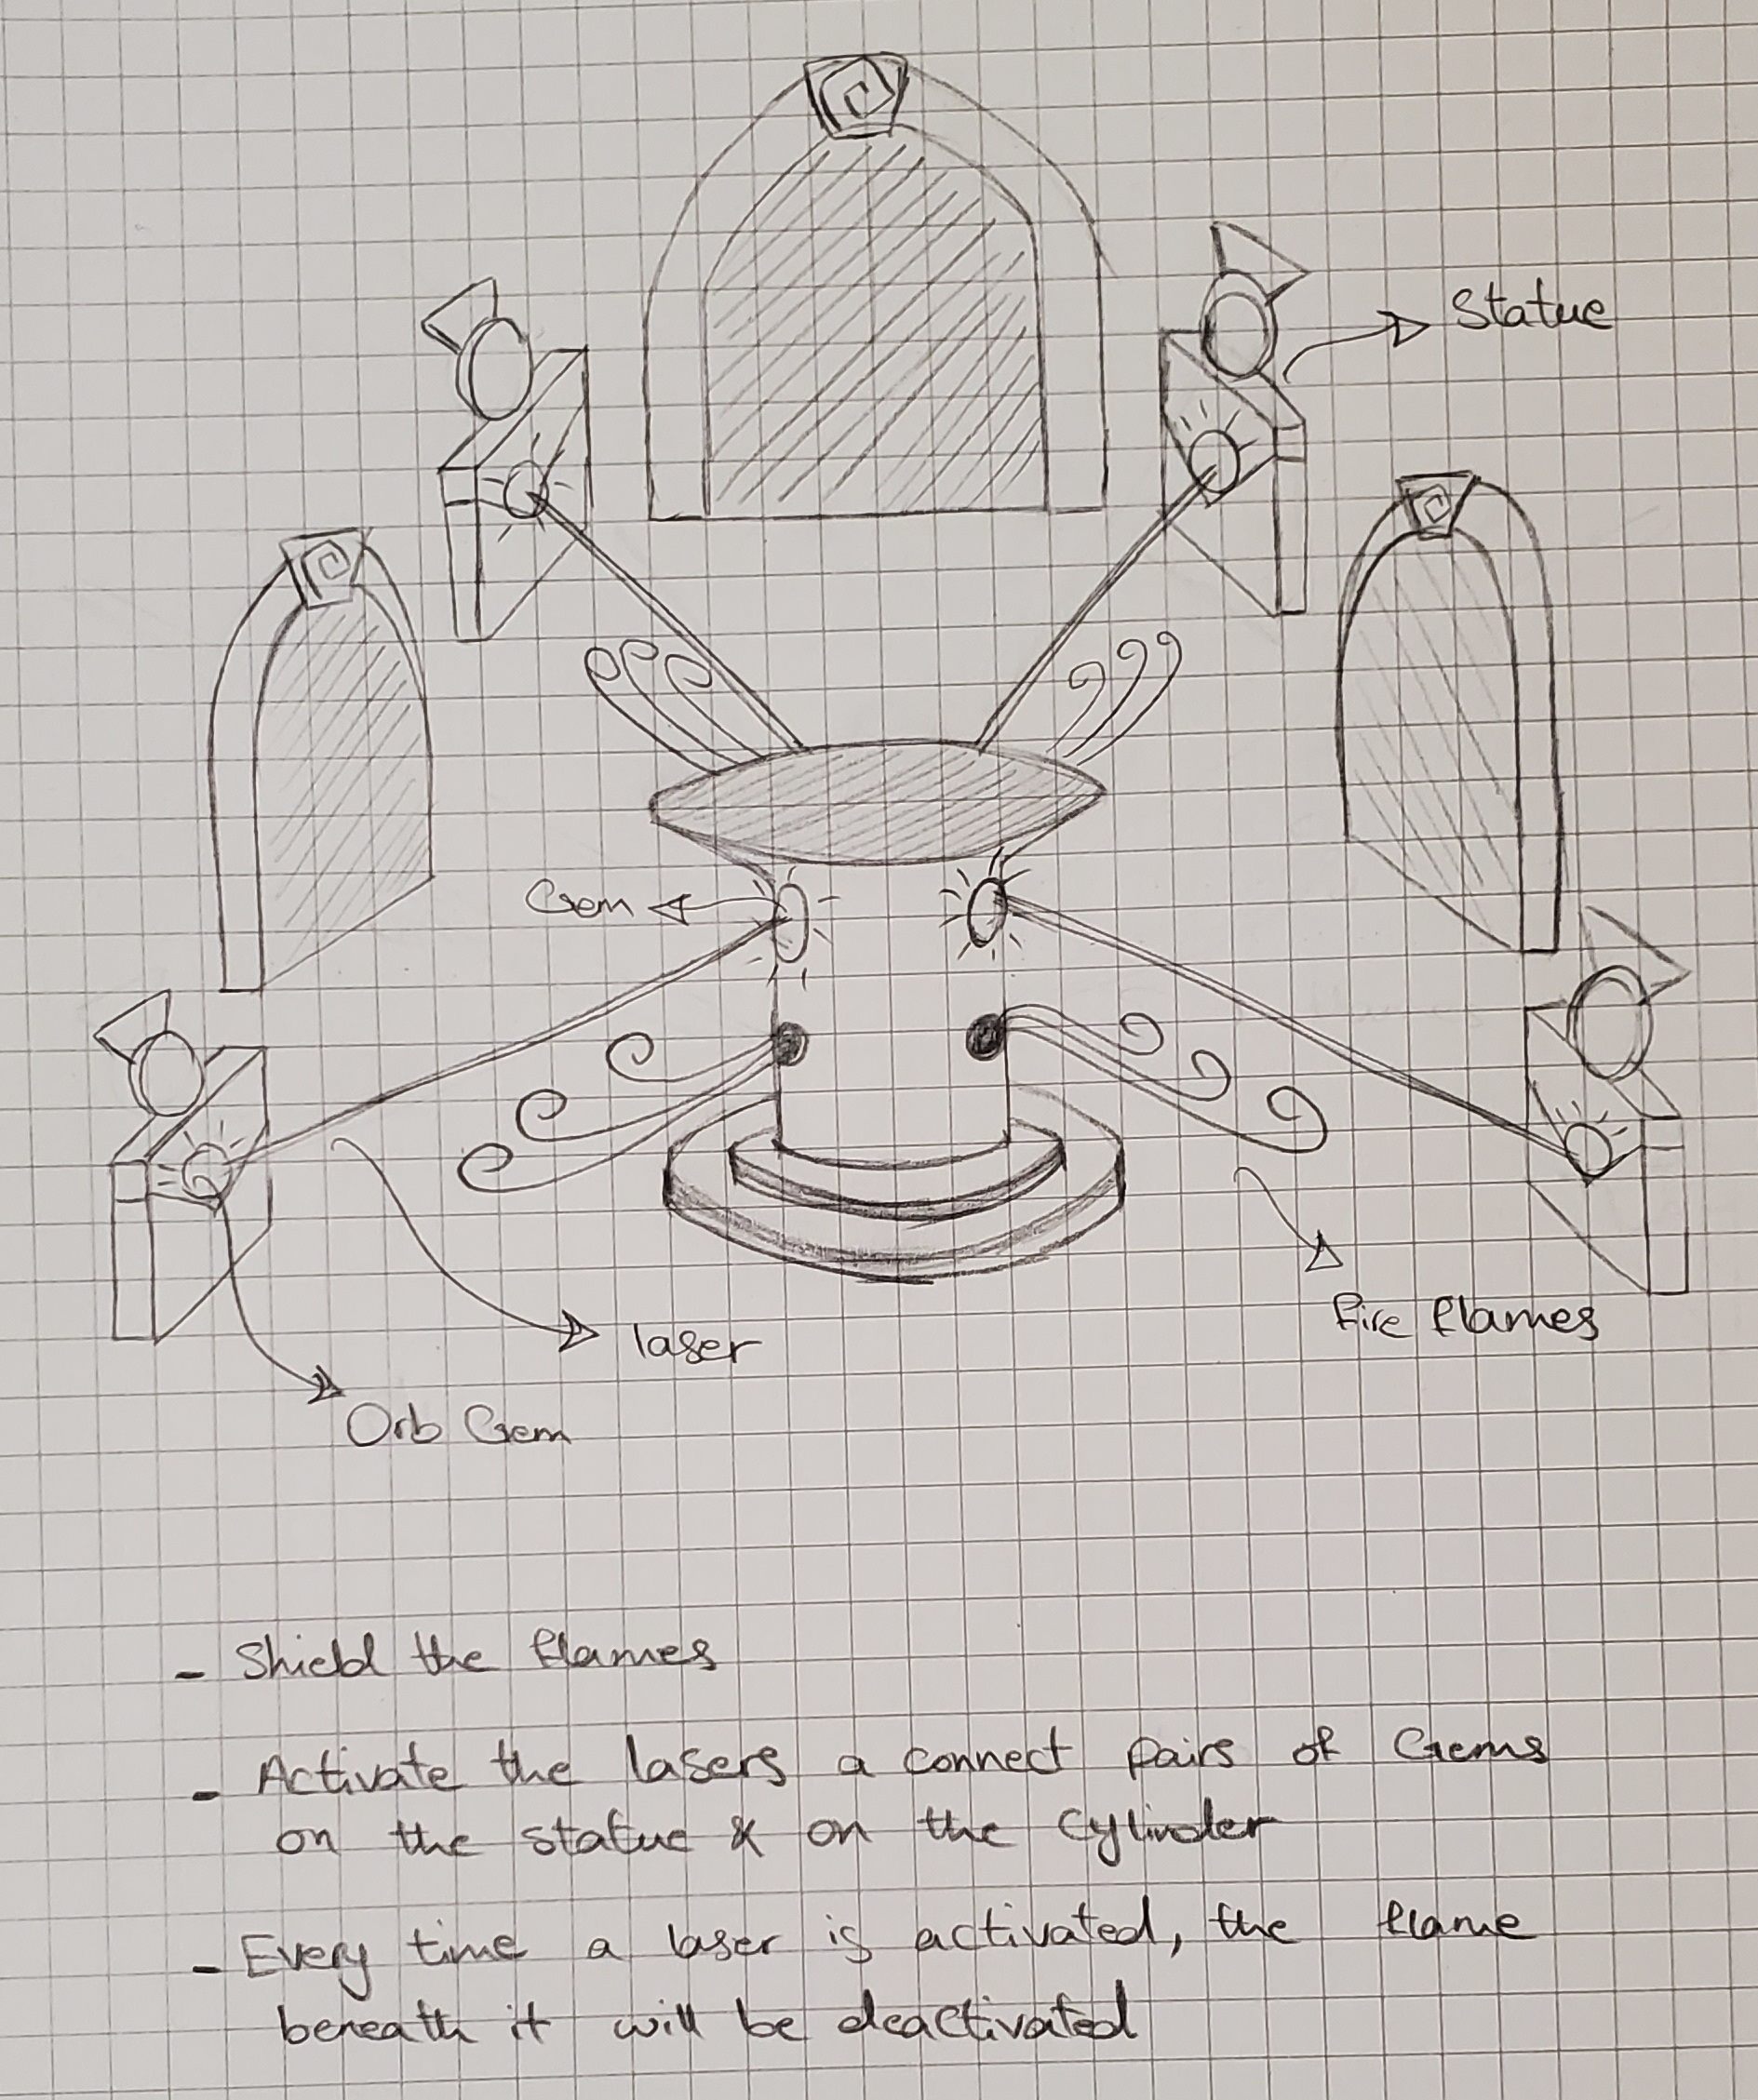 Statue
Gem
Fire flames
laser
Orb Gem
- Shield the flames
- Activate the lasers a connect pairs of Gems
on the statue & on the cylinder
- Every time a laser is activated, the flame
beneath it will be deactivated